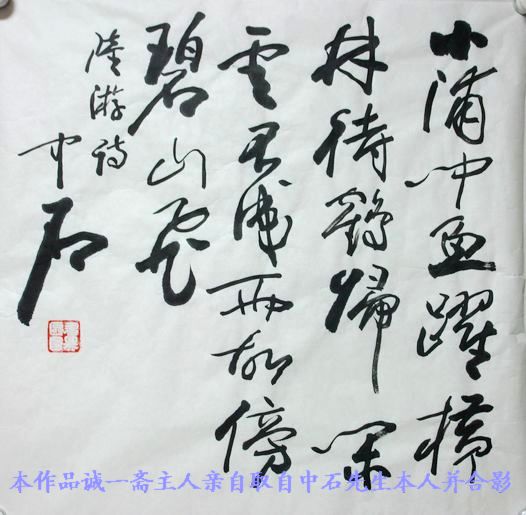 小浦闻魚躍横
林待鶴歸闲
雲不成雨故傍
碧山飛
陸游诗
中石
本作品诚一斋主人亲自取自中石先生本人并合影